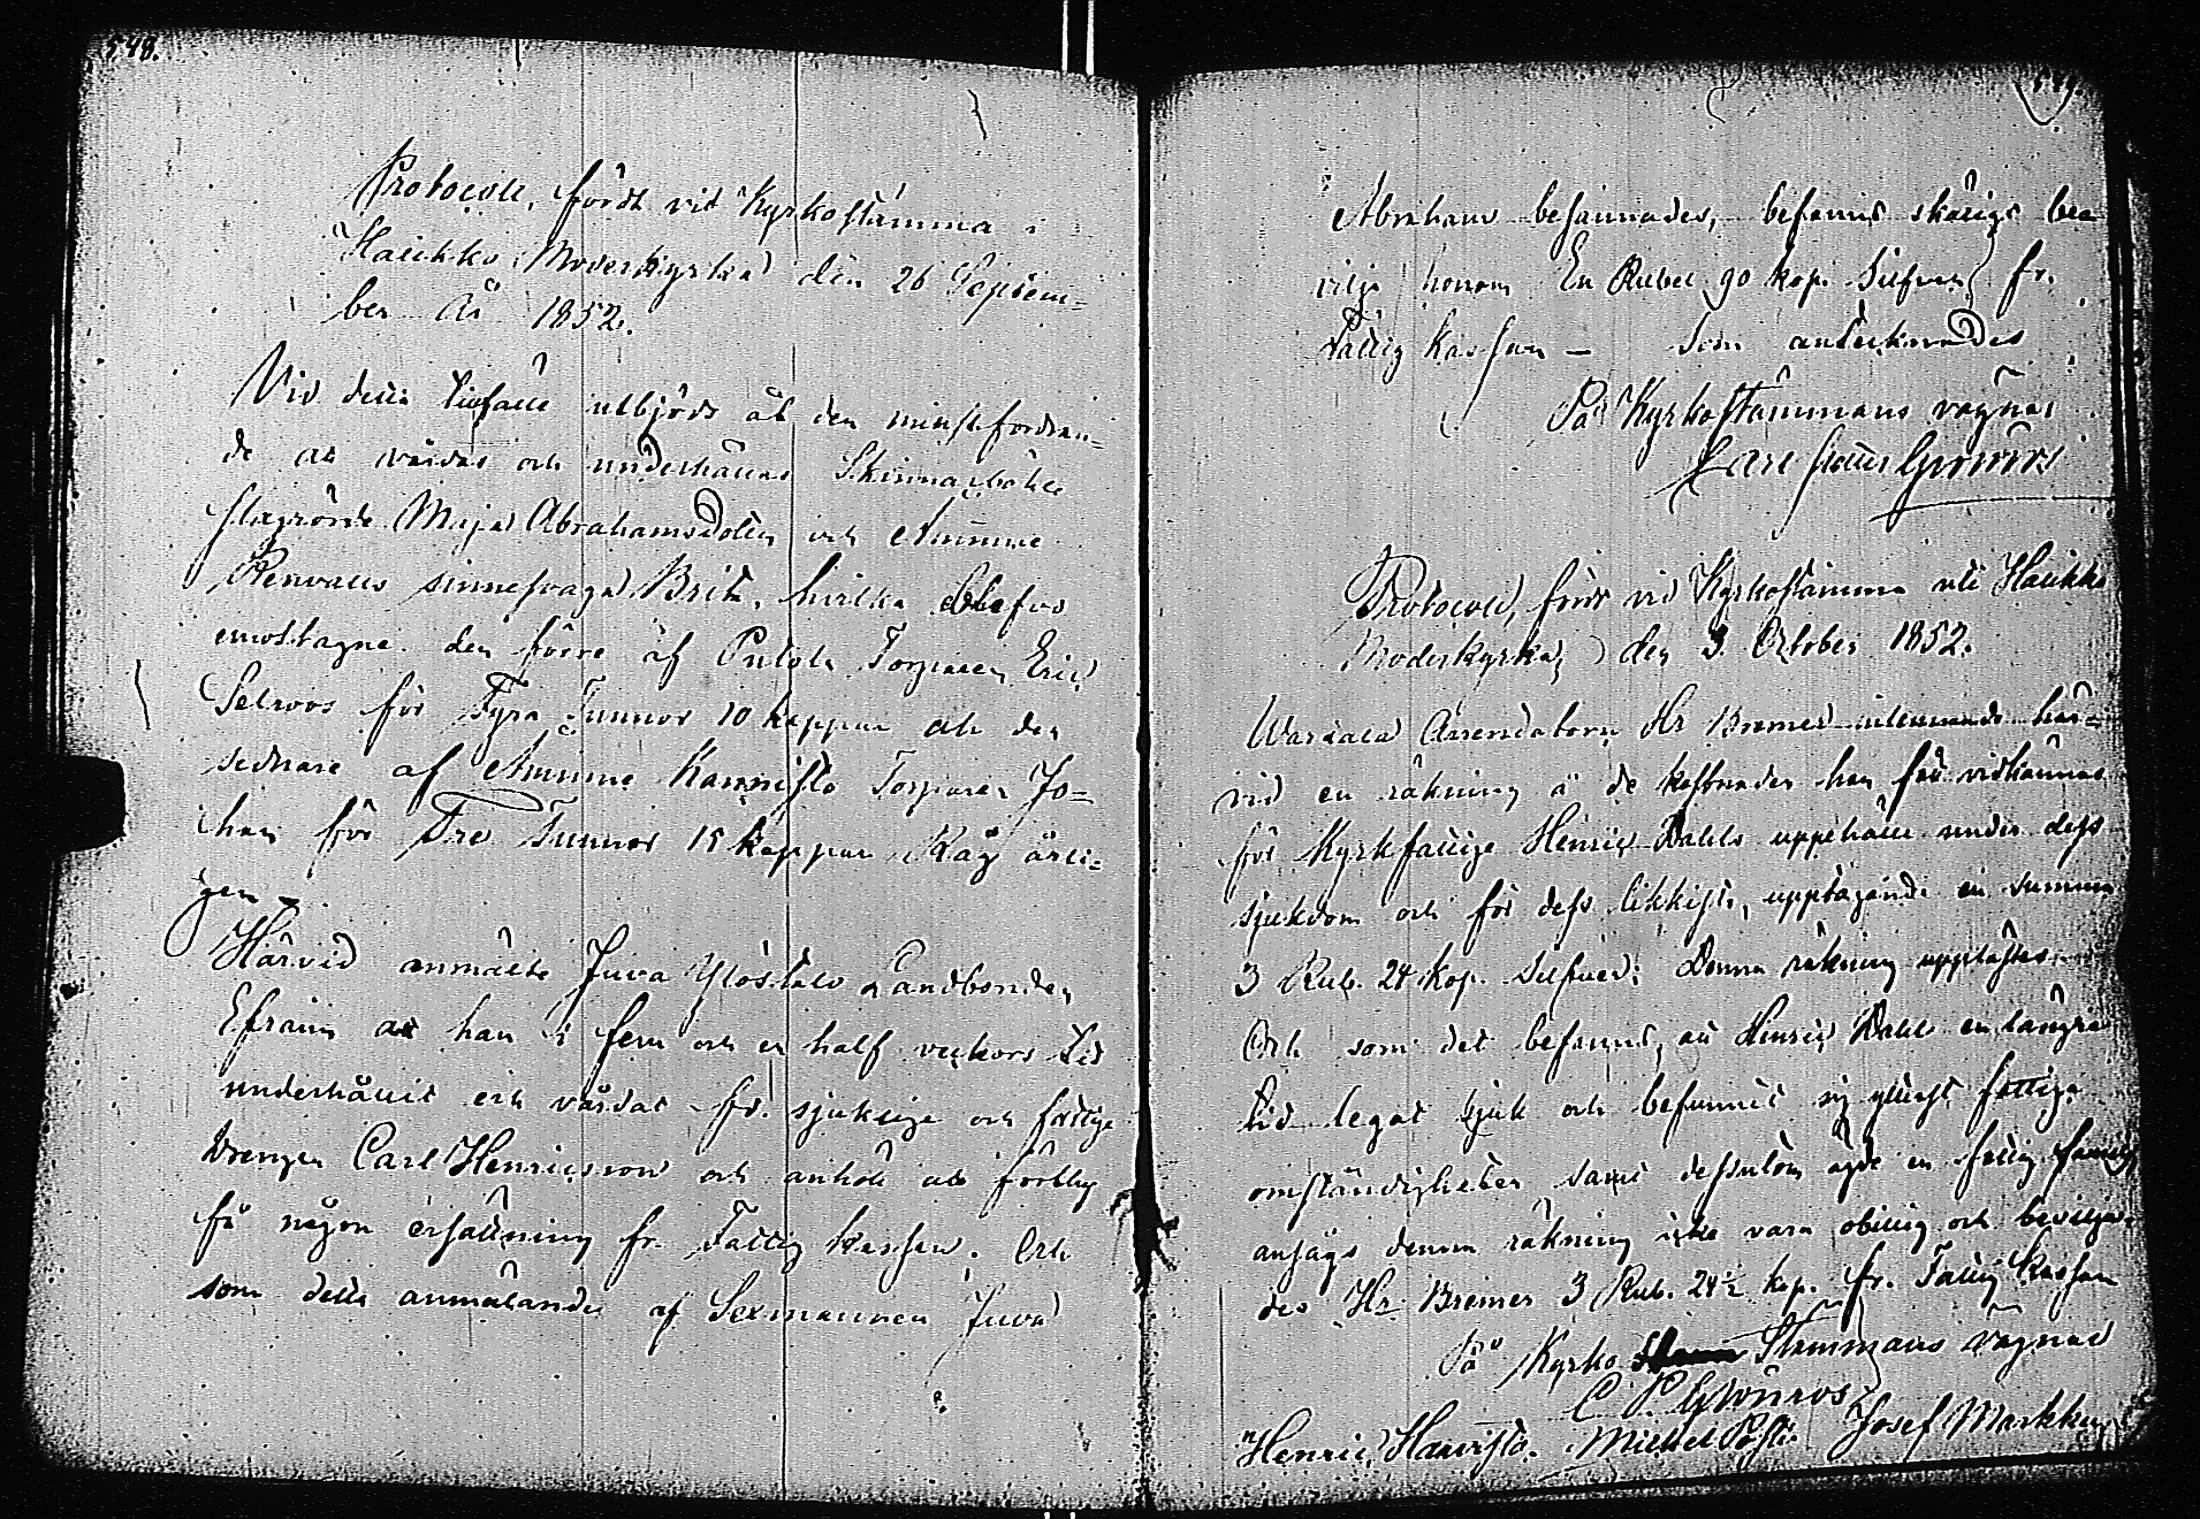 548.
Protocoll, fördt vid Kyrkostämma i
Halikko Moderkyrka den 26 Septem=
ber År 1852.
Vid detta tillfälle utbjöds åt den minstfordran=
de att vårdas och underhållas Skinnarböle
slagrörde Maja Abrahamsdotter och
sinnesvaga Brita, hvilka blefvo
emottagne den förre af Torparen Eric
Selroos för Fyra Tunnor 10 kappar och den
sednare af Torparen Jo=
han för Tre Tunnor 15 kappar Råg årli=
gen
Härvid anmälte Juva Landbonden
Efraim att han i fem och en half veckors tid
underhållit och vårdat sjuklige och fattige
Drengen Carl Henricsson och anhöll att
få någon ersättning fr. Fattig kassan. Och
som detta anmälande af Sexmannen Juva
549.
Abraham besannades, befanns skäligt be
vilja honom En Rubel 90 kop. Silfver fr.
Fattig Kassan — Som antecknades
På Kyrkostämmans vägnar
Carl Petter Grönroos
Protocoll, fördt vid Kyrkostämma uti Halikko
Moderkyrka, den 3. October 1852.
Arrendatorn Hr Bremer inlemnade här=
vid en räkning å de kostnader han fått vidkännas
för Kyrkfattige Henric Dahls uppehälle under dess
sjukdom och för dess likkista, upptagande en summa
3 Rub. 24 kop. Silfver. Denna räkning upplästes
Och som det befanns, att Henric Dahl en längre
tid legat sjuk och befunnit sig ytterst fattiga
omständigheter samt dessutom ägde en fattig familj
ansågs denna räkning icke vara obillig och bevilja=
des Hr Bremer 3 Rub. 24½ kop. fr. Fattig Kassan
På Kyrko Stämmans vägnar
C. P. Grönroos
Henric Harvisto. Michel Pösti Josef Markku